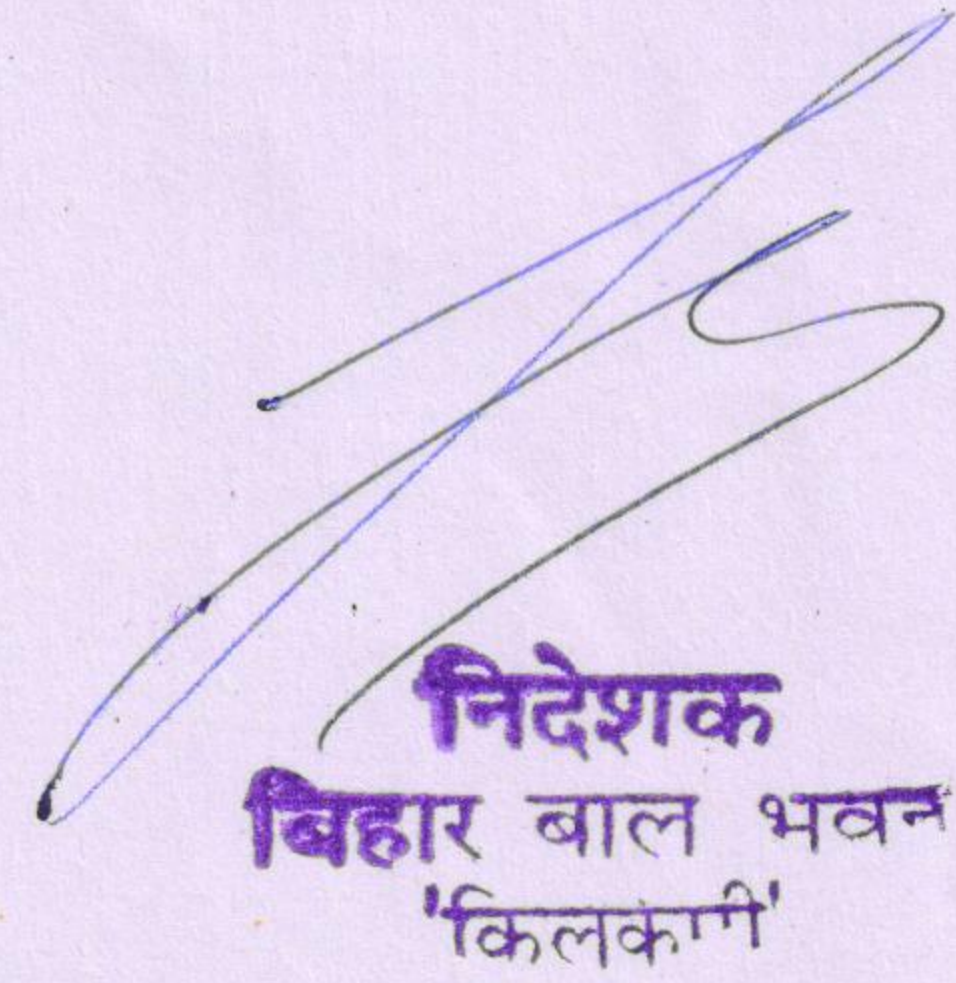 निदेशक
बिहार बाल भवन
'किलकारी'